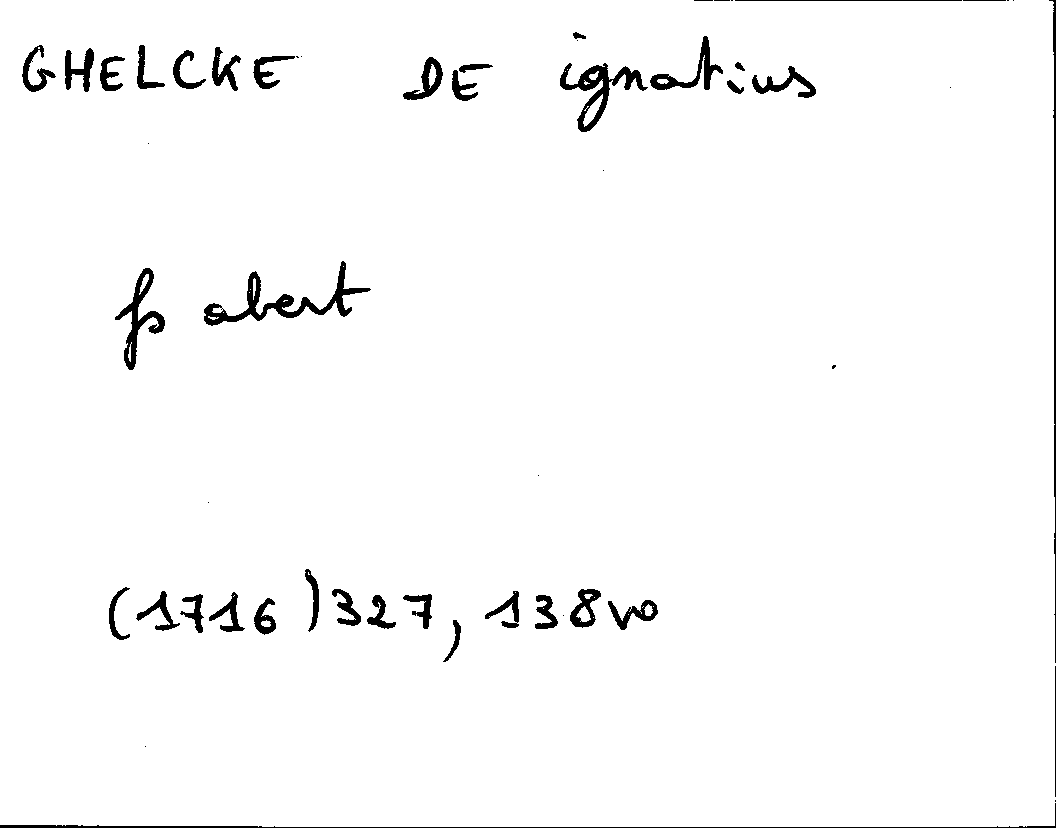 GHELCKE DE ignatius
fs abert
(1716) 327, 138vo